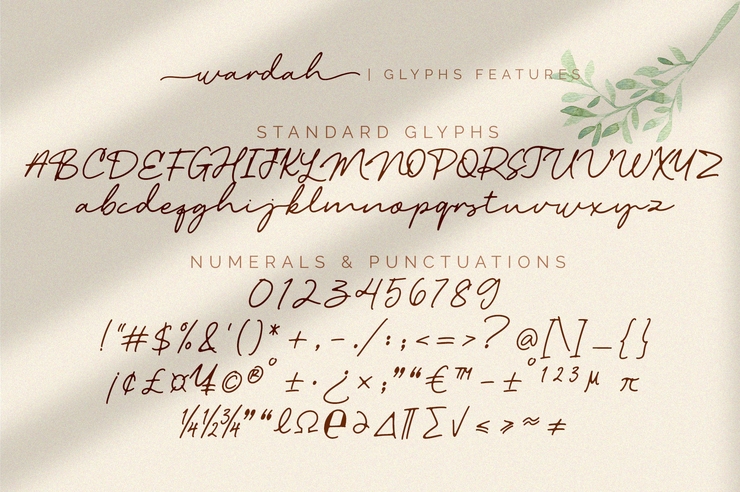 wardah | GLYPHS FEATURES
STANDARD GLYPHS
ABCDEFGHIJKLMNOPQRSTUVWXYZ
abcdefghijklmnopqrstuvwxyz
NUMERALS & PUNCTUATIONS
0123456789
!"#$%&'()*+,-./:;<=>?@[\]_{}
¡¢£¤¥©®°±·¿×;”“€™–±°¹²³µ π
¼½¾”“ℓΩ℮∂∆∏∑√≤≥≈≠